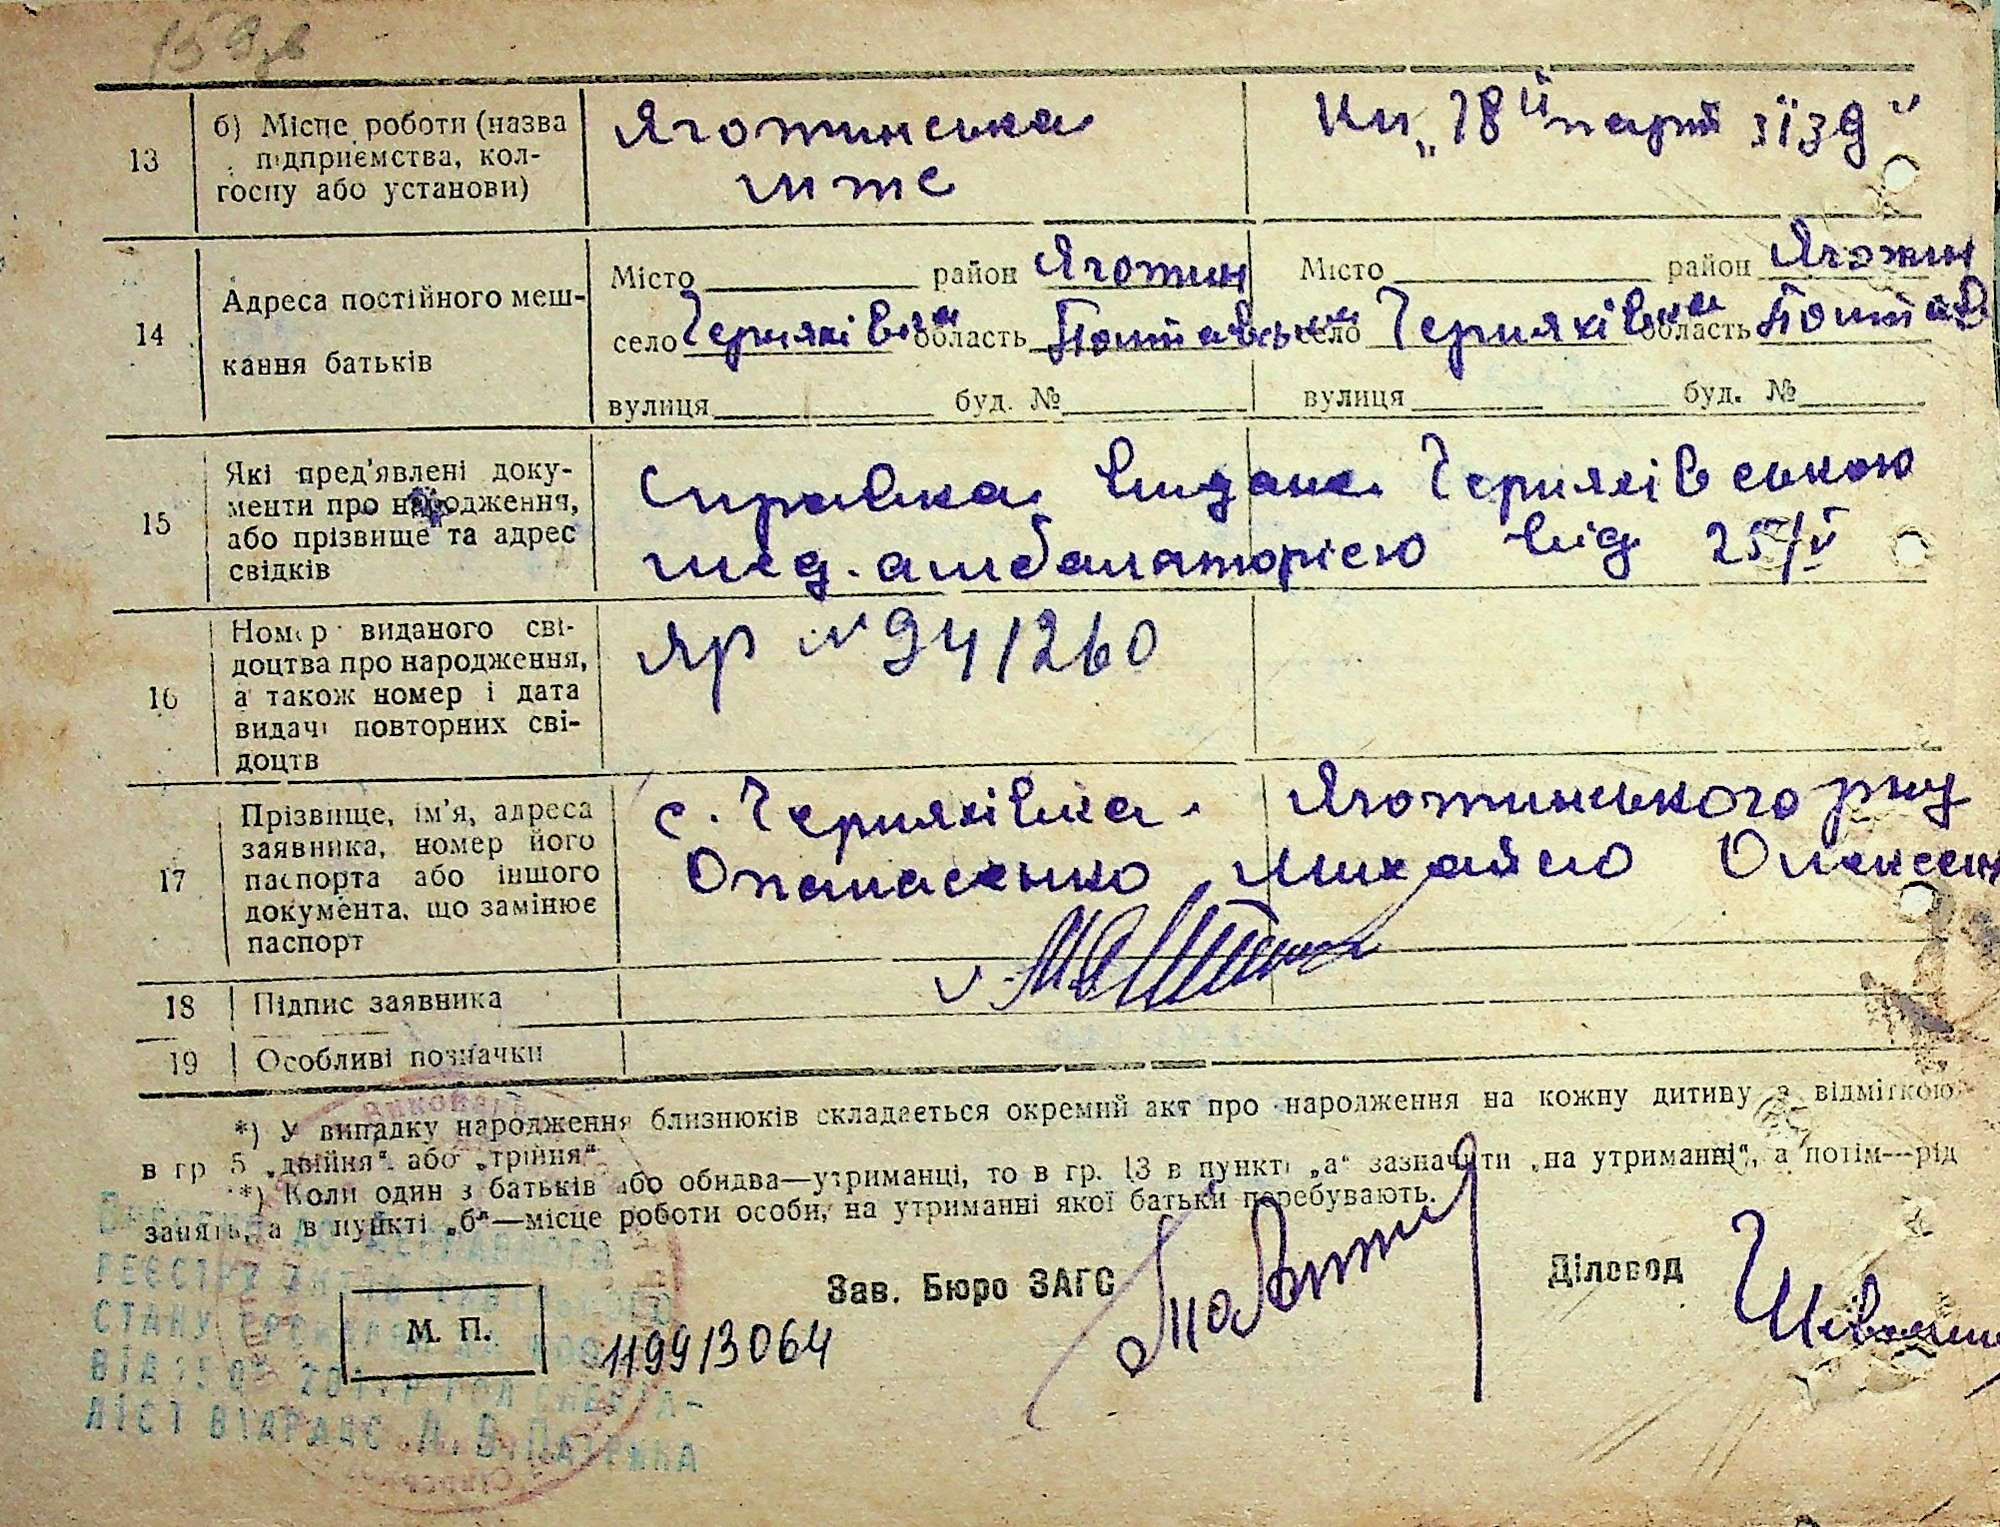 159зв
13
б) Місце роботи (назва
підприємства, кол-
госпу або установи)
Яготинська
мтс
Кп „18й парт зїзд"
14
Адреса постійного меш-
кання батьків
Місто район Яготин
село Черняхівка область Полтавська
вулиця буд. №
Місто район Яготин
село Черняхівка область Полтав
вулиця буд. №
15
Які пред'явлені доку-
менти про народження,
або прізвище та адрес
свідків
Справка видана Черняхівською
мед. амбалаторією від 25/V
16
Номер виданого сві-
доцтва про народження,
а також номер і дата
видачі повторних сві-
доцтв
ЯР № 941260
17
Прізвище, ім'я, адреса
заявника, номер його
паспорта або іншого
документа, що замінює
паспорт
с. Черняхівка Яготинського рну
Опанасенко Михайло Олексеи
18
Підпис заявника
19
Особливі позначки
*) У випадку народження близнюків складається окремий акт про народження на кожну дитину з відміткою
в гр 5 „двійня" або „трійня"
*) Коли один з батьків або обидва—утриманці, то в гр. 13 в пункті „а" зазначити „на утриманні", а потім—рід
занять, а в пункті „б"—місце роботи особи, на утриманні якої батьки перебувають.
Зав. Бюро ЗАГС
Діловод
М. П.
11993064
ДЕРЖАВНОГО
РЕЄСТРУ АКТІВ
СТАНУ ГРОМАДЯН
ВІД